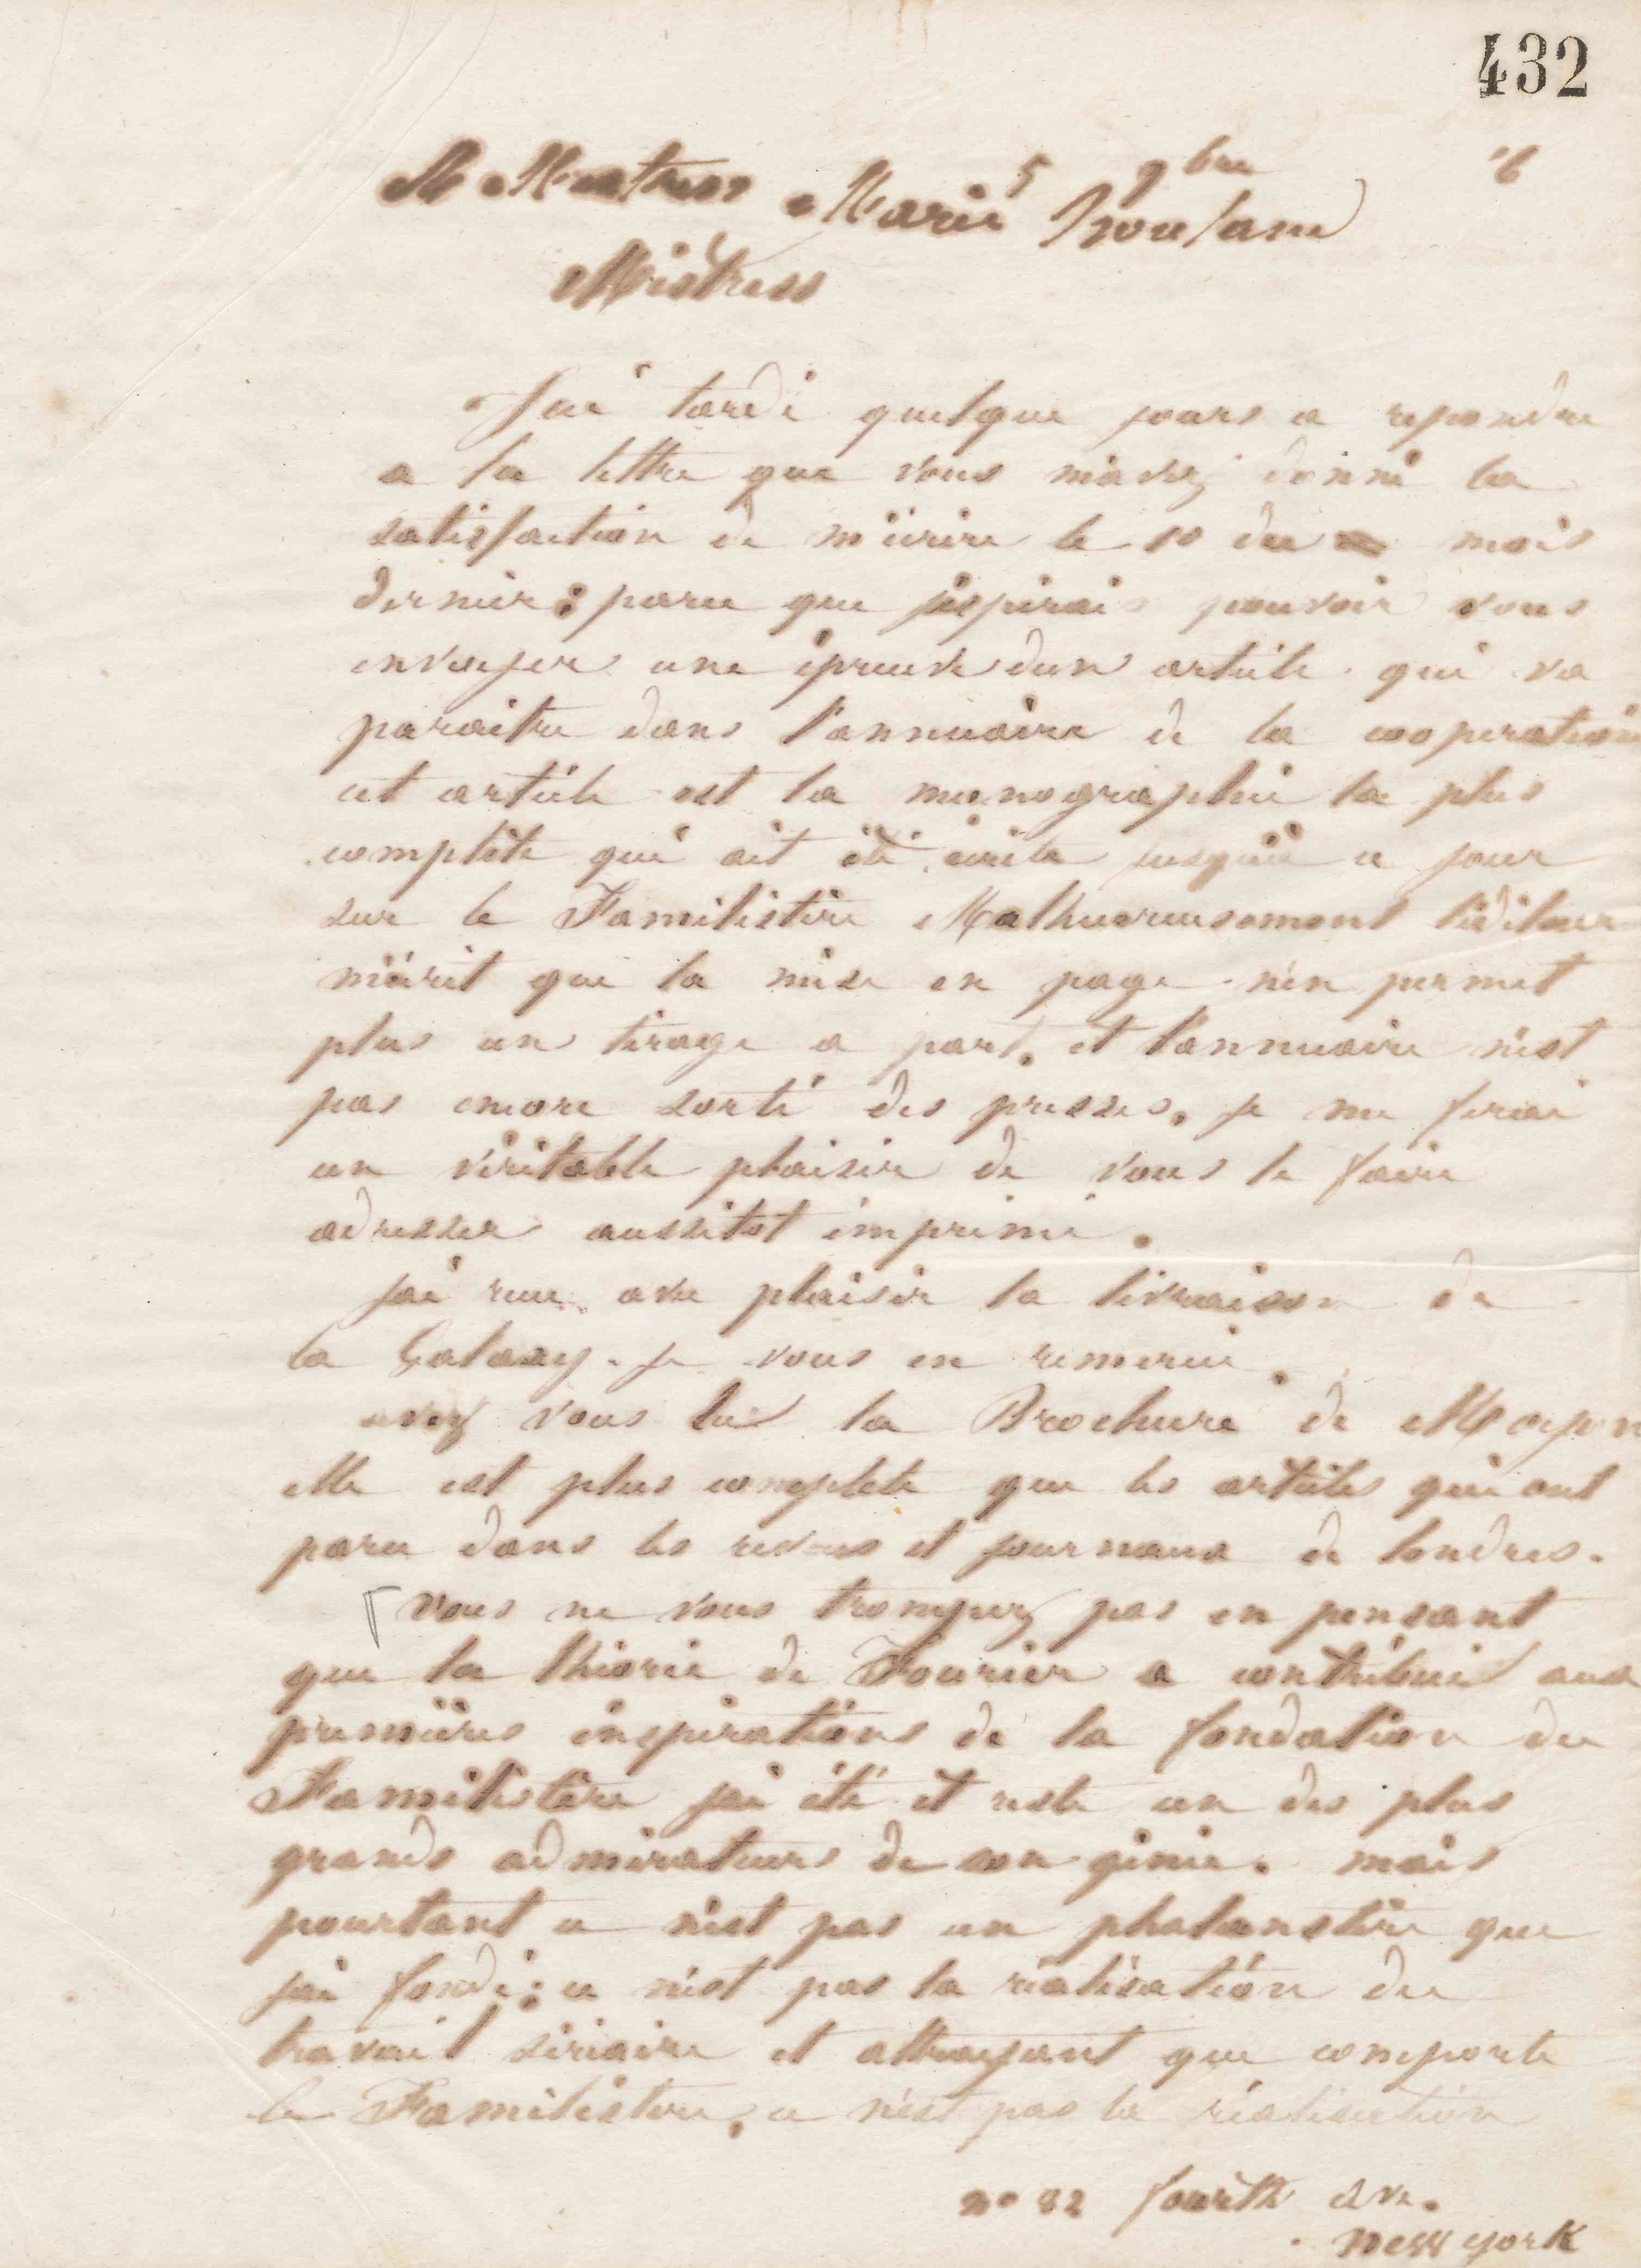 432
5 9bre 6
A Mistress Marie Howland
Mistress
J'ai tardé quelque jours a repondre
a la lettre que vous m'avez donné la
satisfaction de m'écrire le 10 du mois
dernier : parce que j'éspérais pouvoir vous
envoyer une épreuve dun article qui va
paraitre dans l'annuaire de la cooperation
cet article est la monographie la plus
complète qui ait été écrite jusqu'à ce jour
sur le Familistère Malheureusement l'éditeur
m'écrit que la mise en page n'en permet
plus un tirage a part. et l'annuaire n'est
pas encore sorti des presses. je me ferai
un véritable plaisir de vous le faire
adresser aussitot imprimé.
j'ai reçu avec plaisir la livraison de
la Galaxy. je vous en remercie.
avez vous lu la Brochure de Moyen
elle est plus complete que les articles qui ont
paru dans les revues et journaux de londres.
vous ne vous trompez pas en pensant
que la théorie de Fourier a contribué aux
premières inspirations de la fondation du
Familistère j'ai été et reste un des plus
grands admirateurs de son génie. mais
pourtant ce n'est pas un phalanstère que
j'ai fondé : ce n'est pas la réalisation du
travail sériaire et attrayant que comporte
le Familistère, ce n'est pas la réalisation
no 32 fourth ave.
New york